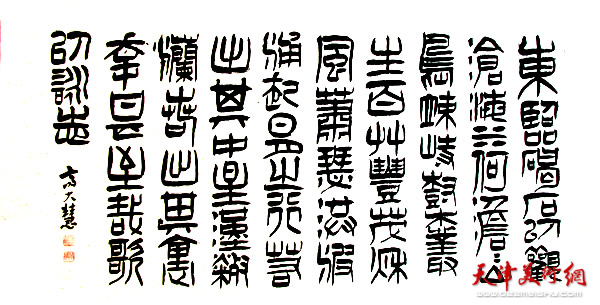 東臨碣石以觀
滄海水何澹〻山
島竦峙樹木叢
生百艸豐茂秋
風蕭瑟洪波
涌起日月之行若
出其中星漢粲
爛若出其裏
幸甚至哉歌
以詠志
天津美術網